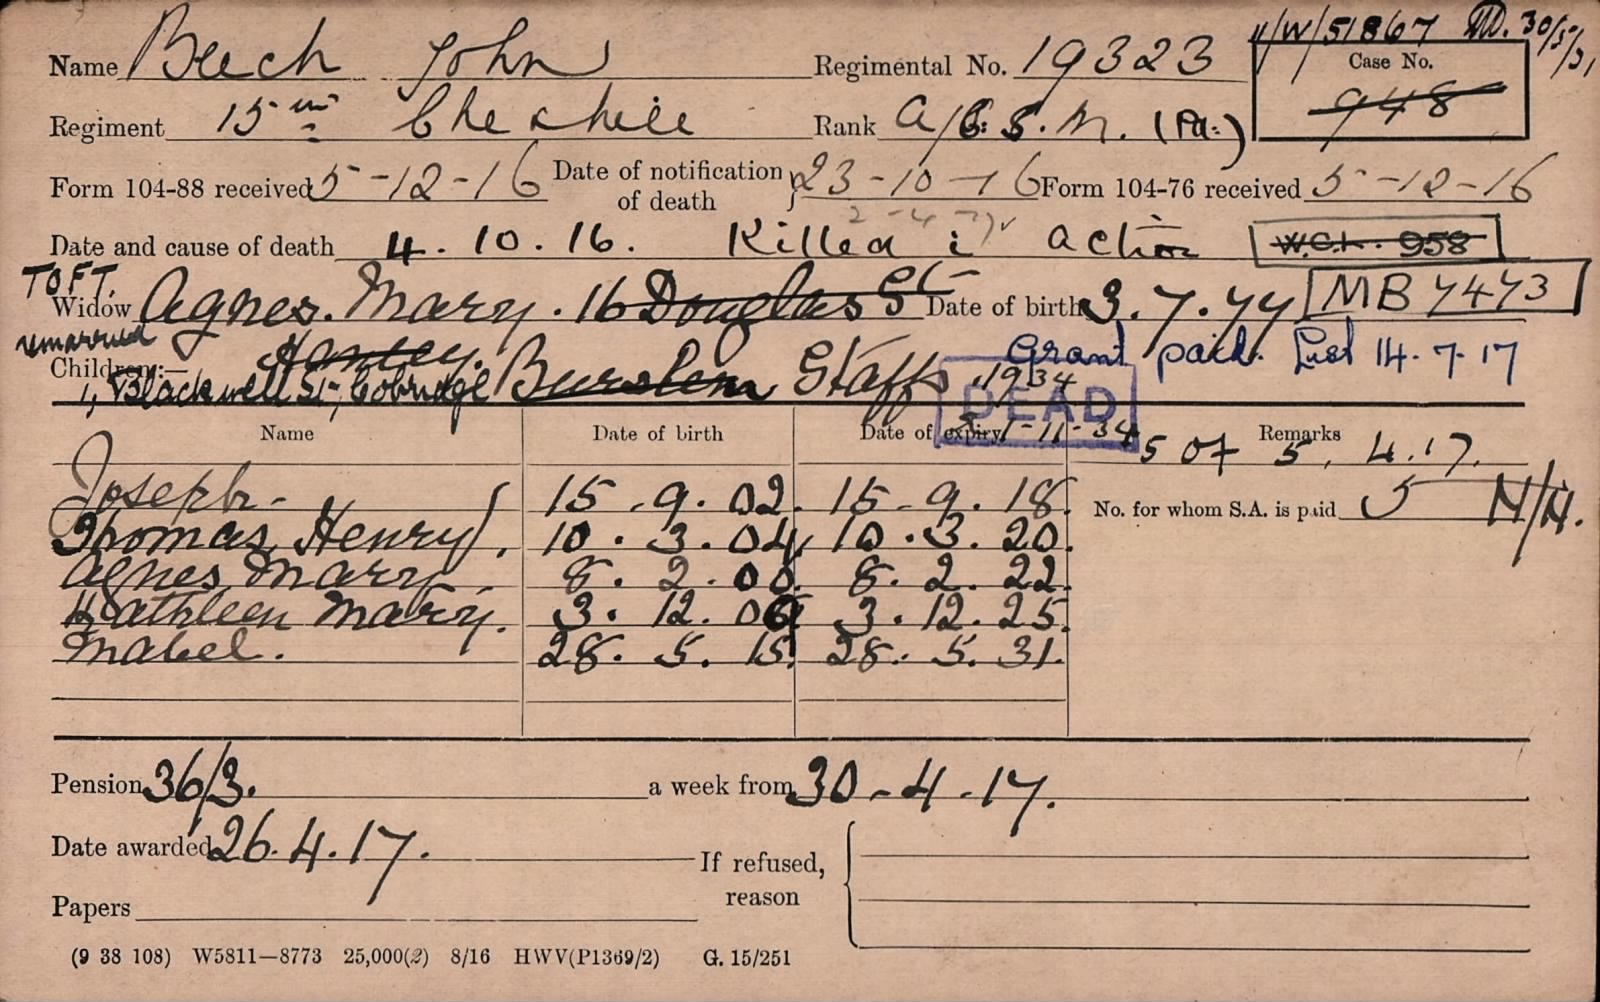 11/W/51867 30/5/31
Name Beech John Regimental No. 19323 Case No.
948
Regiment 15th Cheshire Rank A/C.S.M. (Pd:)
Form 104-88 received 5-12-16 Date of notification of death } 23-10-16 Form 104-76 received 5-12-16
Date and cause of death 4.10.16. Killed i action W.C.1. 958
TOFT.
Widow Agnes. Mary. 16 Douglas St Date of birth 3.7.77 MB 7473
remarried
Children:— Hanley. Burslem Staffs Grant paid. List 14.7.17
1, Blackwell St, Cobridge
1934
DEAD
Name Date of birth Date of expiry 1-11-34 Remarks
5 of 5. 4.17.
Joseph - 15.9.02. 15.9.18.
No. for whom S.A. is paid 5 N/N.
Thomas Henry. 10.3.04. 10.3.20.
Agnes Mary. 8.2.06. 8.2.22.
Kathleen Mary. 3.12.09 3.12.25.
Mabel. 28.5.15. 28.5.31.
Pension 36/3. a week from 30-4-17.
Date awarded 26.4.17. If refused, reason
Papers
(9 38 108) W5811—8773 25,000(2) 8/16 HWV(P1369/2) G. 15/251